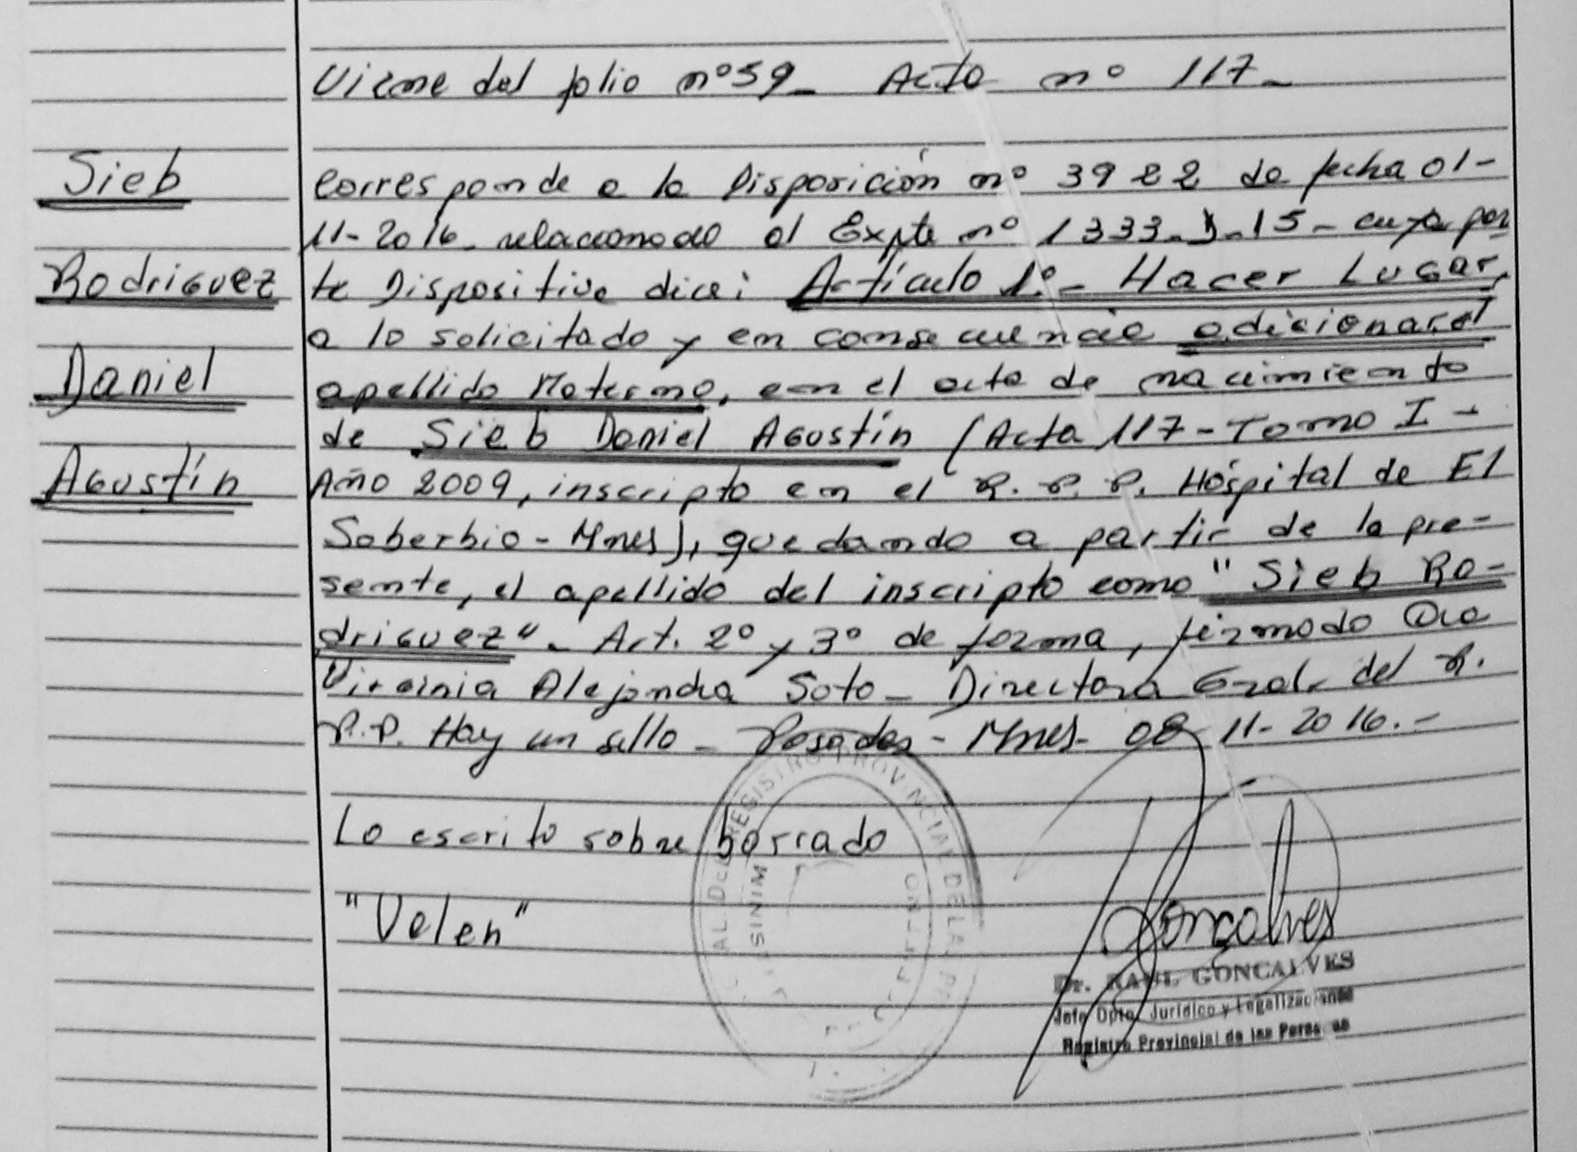 Viene del folio nº 59_ Acta nº 117_
Sieb
Rodriguez
Daniel
Agustín
Corresponde a la Disposición nº 3922 de fecha 01-
11-2016_ relacionado al Expte nº 1333_J_15_ cuya par
te Dispositiva dice: Artículo 1º_ Hacer Lugar,
a lo solicitado y en consecuencia adicionar el
apellido Materno, en el acta de nacimiento
de Sieb Daniel Agustín (Acta 117-Tomo I-
Año 2009, inscripto en el R. P. P. Hospital de El
Soberbio-Mnes), quedando a partir de la pre-
sente, el apellido del inscripto como "Sieb Ro-
driguez"_ Art. 2º y 3º de forma, firmado Dra
Virginia Alejandra Soto_ Directora Gral. del R.
P.P. Hay un sello_ Posadas - Mnes- 08 11-2016.-
Lo escrito sobre borrado
"Velen"
REGISTRO PROVINCIAL DE LA
Goncalves
Dr. RAUL GONCALVES
Jefe Dpto. Jurídico y Legalizaciones
Registro Provincial de las Personas